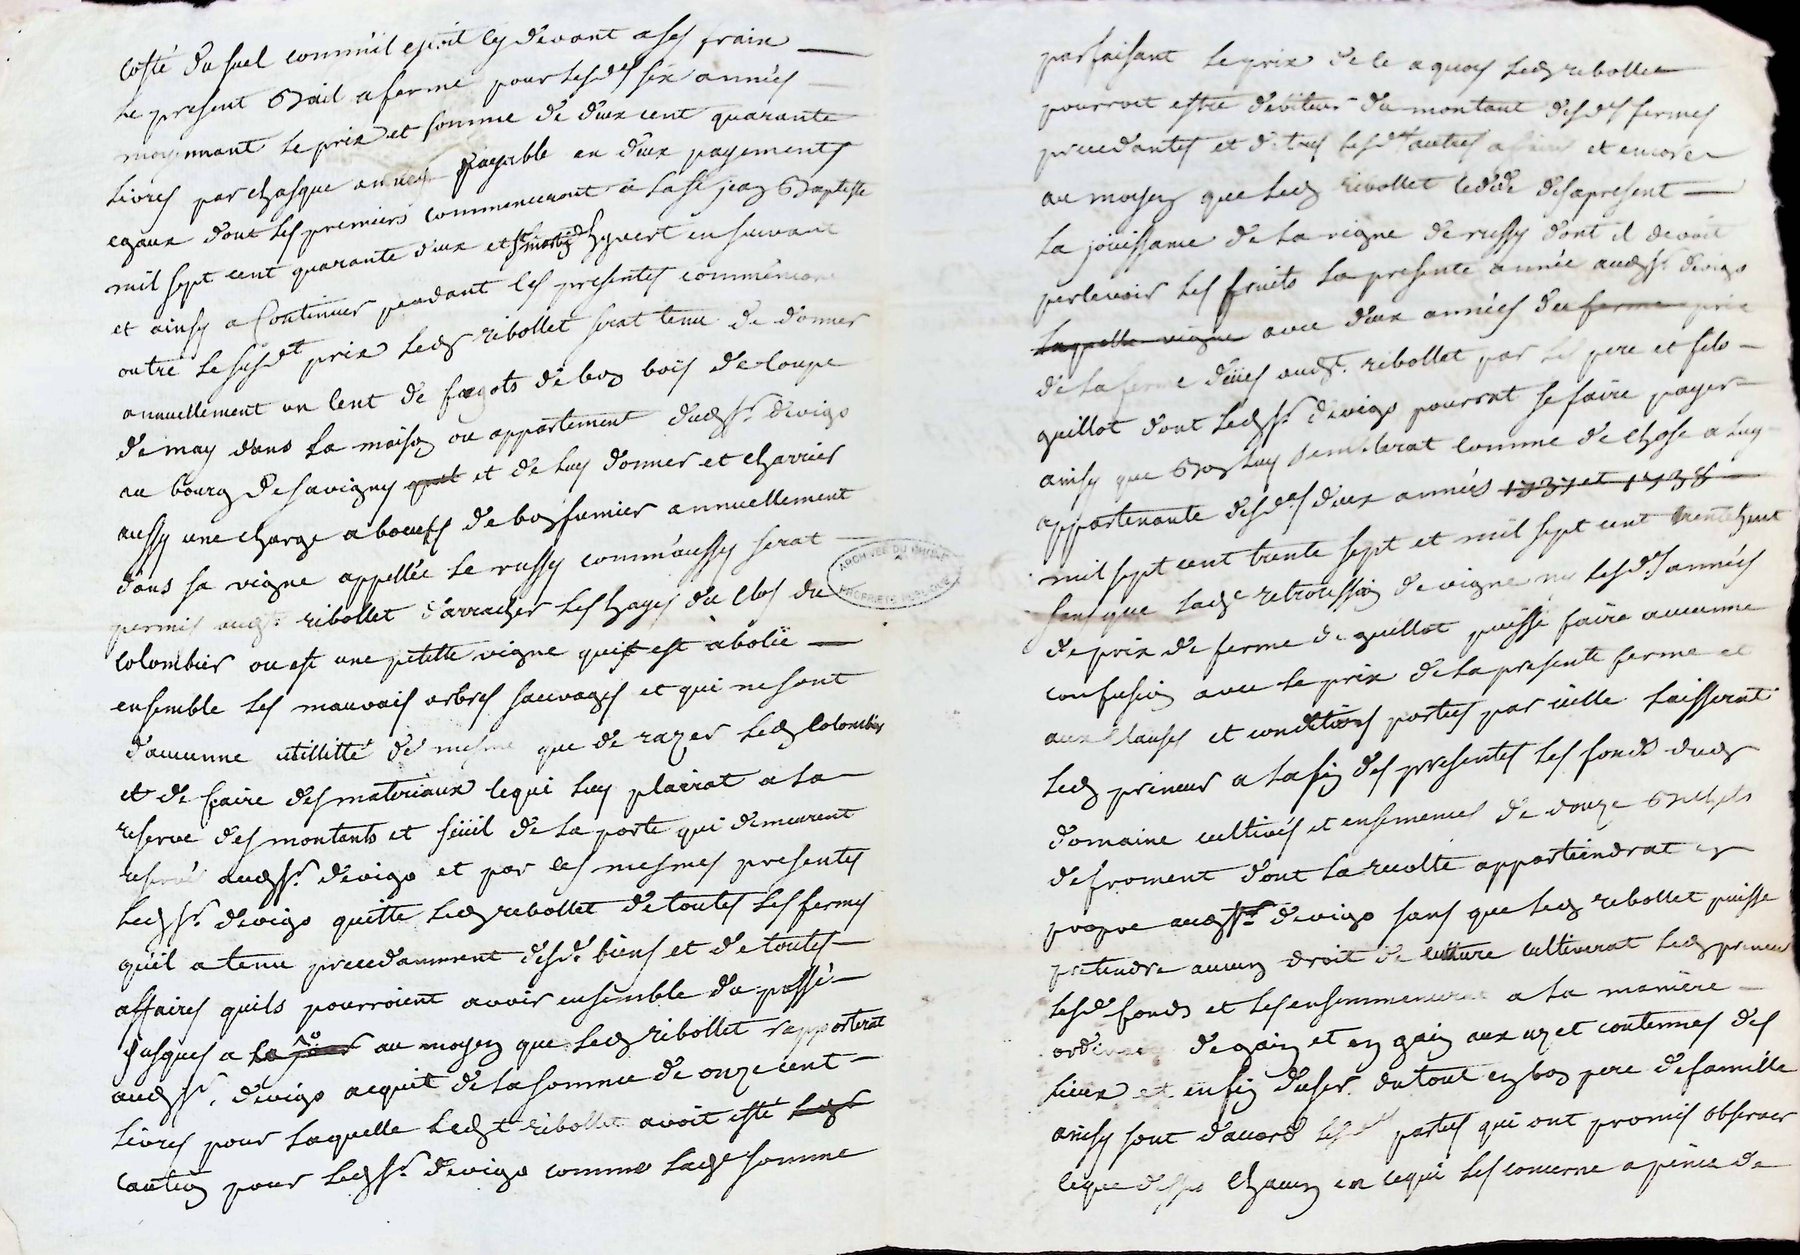 costé du suel comm'il estoit cy devant a ses frais
le present Bail a ferme pour lesd. six années
moyennant le prix et somme de deux cent quarante
livres par chasque année payable en deux payements
egaux dont les premiers commenceront a la St jean Baptiste
mil sept cent quarante deux et St martin d'hyvert ensuivant
et ainsy a Continuer pendant les presentes
outre le susdt prix led ribollet serat tenu de donner
annuellement un cent de fagots de bon bois de coupe
de may dans la maison ou appartement dud Sr. devigo
au bourg de savigny et de luy donner et charrier
aussy une charge a boeufs de bon fumier annuellement
dans sa vigne appellée le russy comm'aussy serat
permis aud. ribollet d'arracher les hayes du clos du
Colombier ou est une petitte vigne qui est abolie
ensemble les mauvais arbres sauvages et qui ne sont
d'aucunne utillitté de mesme que de razer led Colombier
et de faire des materiaux ce qui luy plairat a la
reserve des montants et seüil de la porte qui demeurent
aud Sr. devigo et par ces mesmes presentes
led Sr. devigo quitte led ribollet de toutes les fermes
qu'il a tenu precedamment desd. biens et de toutes
affaires quils pourroient avoir ensemble du passé
jusques a ce jour au moyen que led ribollet rapporterat
aud Sr. devigo acquit de la somme de onze cent
livres pour laquelle led ribollet avoit esté
caution pour led Sr. devigo comme lade somme
parfaisant le prix de ce a quoy led ribollet
pourroit estre debiteur du montant desd. fermes
precedantes et de tous lesd. autres affaires et encore
au moyen que led ribollet cedde des a present
la joüissance de la vigne de russy dont il devoit
percevoir les fruits la presente année aud Sr. devigo
laquelle vigne avec deux années du ferme prix
de la ferme deües aud. ribollet par les pere et fils
guillot dont led Sr. devigo pourrat se faire payer
ainsy que Bon luy semblerat comme de chose a luy
appartenante desd. deux années 1737 et 1738
mil sept cent trente sept et mil sept cent trentehuit
sans que lade retrocession de vigne ny lesd. années
de prix de ferme de guillot puisse faire aucunne
confusion avec le prix de la presente ferme et
aux clauses et conditions portées par icelle laisserat
led preneur a la fin des presentes les fonds dud
domaine cultivés et ensemencés de douze Bichets
de froment dont la recolte appartiendrat en
propre aud Sr. devigo sans que led ribollet puisse
pretendre aucun droit de culture cultiverat led preneur
lesd. fonds et les ensemmencerat a la maniere
ordinaire de gain et en gain aux uz et coutumes des
lieux et enfin d'user du tout en bon pere de famille
ainsy sont d'accord les parties qui ont promis observer
ce que dessus chacun en ce qui les concerne a peine de